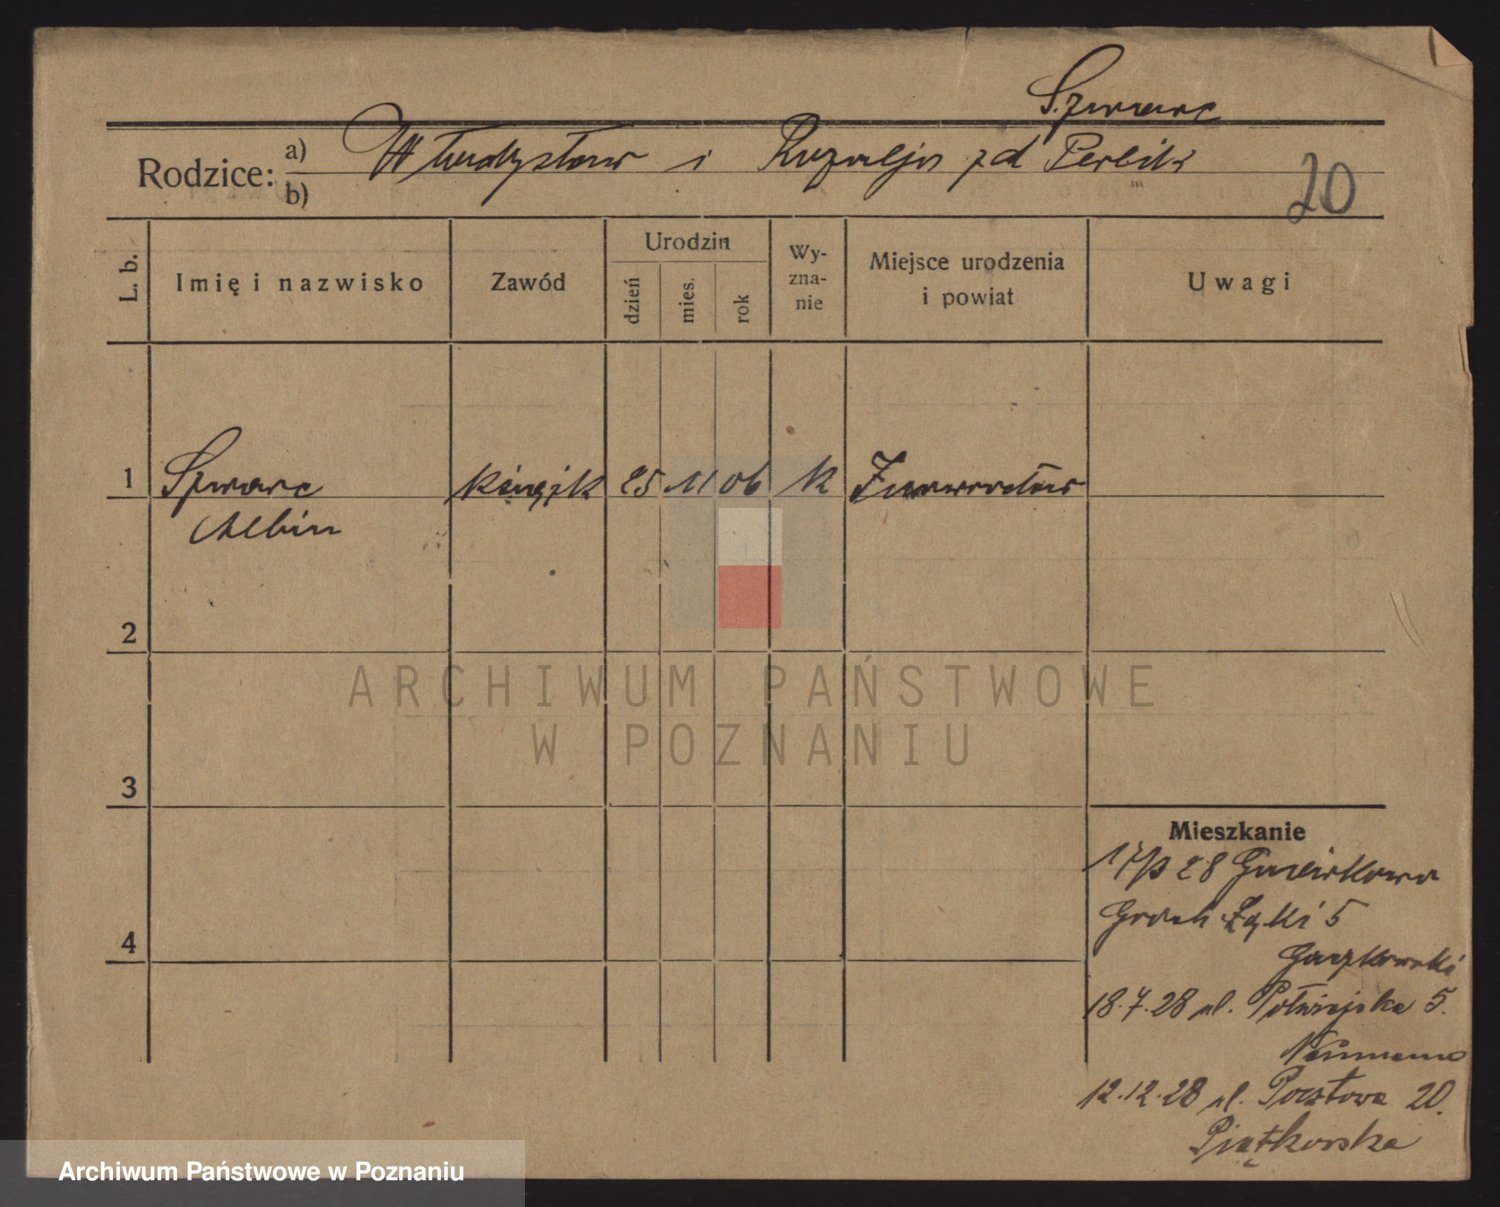 Szwarc
Rodzice: a) Władysław i Rozalja zd Perlik
b)
20
L. b.
Imię i nazwisko
Zawód
Urodzin
dzień
mies.
rok
Wy-
zna-
nie
Miejsce urodzenia
i powiat
Uwagi
1 Szwarc 25 11 06 k Inowrocław
Albin
2
3
4
Mieszkanie
28
Groch Łąki 5
18.7.28 ul. Półwiejska 5.
Neumann
12.12.28 ul. Pocztowa 20.
Piątkowska
ARCHIWUM PAŃSTWOWE
W POZNANIU
Archiwum Państwowe w Poznaniu